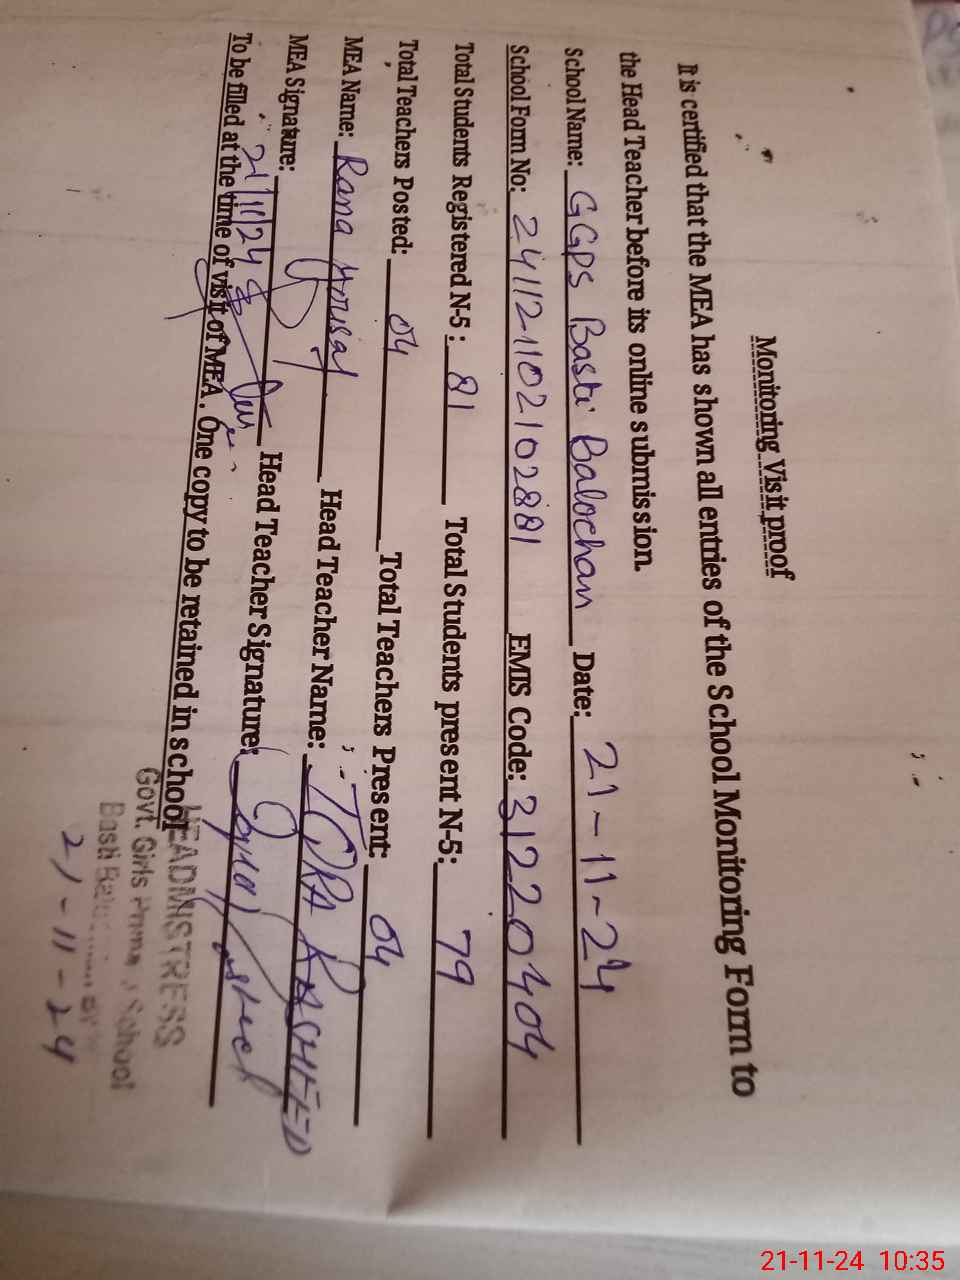 Monitoring Visit proof
It is certified that the MEA has shown all entries of the School Monitoring Form to
the Head Teacher before its online submission.
School Name: GGPS Basti Balochan Date: 21-11-24
School Form No: 241121102102881 EMIS Code: 31220404
Total Students Registered N-5: 81 Total Students present N-5: 79
Total Teachers Posted: 04 Total Teachers Present: 04
MEA Name: Rana Head Teacher Name: IQRA RASHEED
MEA Signature: Head Teacher Signature:
21/11/24
To be filled at the time of visit of MEA. One copy to be retained in school
HEADMISTRESS
Govt. Girls School
Basti
21-11-24
21-11-24 10:35